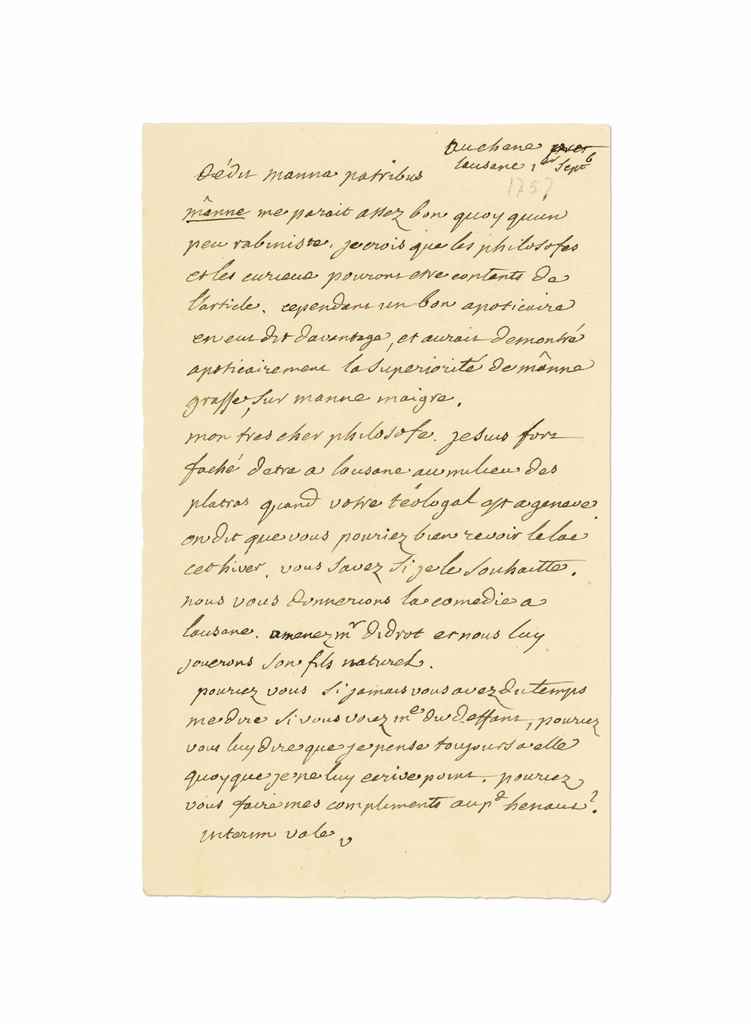 au chene
lausane 1er Septb
1757
Dédit manna patribus
mânne me parait assez bon quoy qu'un
peu rabiniste. je crois que les philosofes
et les curieux pouront etre contents de
l'article. cependant un bon apoticaire
en eut dit davantage, et aurait demontré
apoticairement la superiorité de mânne
grasse, sur manne maigre.
mon tres cher philosofe. je suis fort
faché detre a lausane au milieu des
platras quand votre téologal est a geneve.
on dit que vous pouriez bien revoir le lac
cet hiver. vous savez si je le souhaitte.
nous vous donnerions la comedie a
lausane. amenez mr didrot et nous luy
jouerons son fils naturel.
pouriez vous si jamais vous avez du temps
me dire si vous voiez me du deffant, pouriez
vous luy dire que je pense toujours a elle
quoyque je ne luy ecrive point. pouriez
vous faire mes compliments au pd henaut?
interim vale v